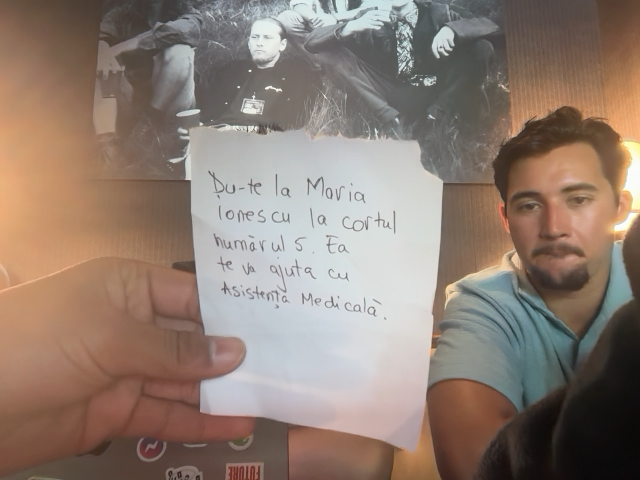 Du-te la Maria
Ionescu la cortul
numărul 5. Ea
te va ajuta cu
Asistență Medicală.
FUTURE